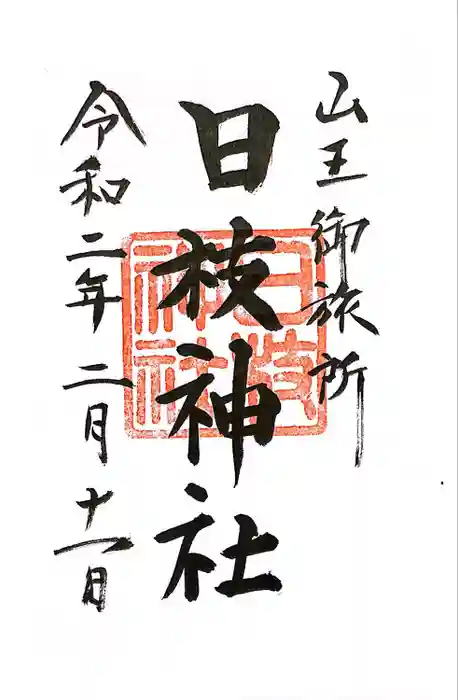 山王御旅所
日枝神社
日枝神社
令和二年二月十一日